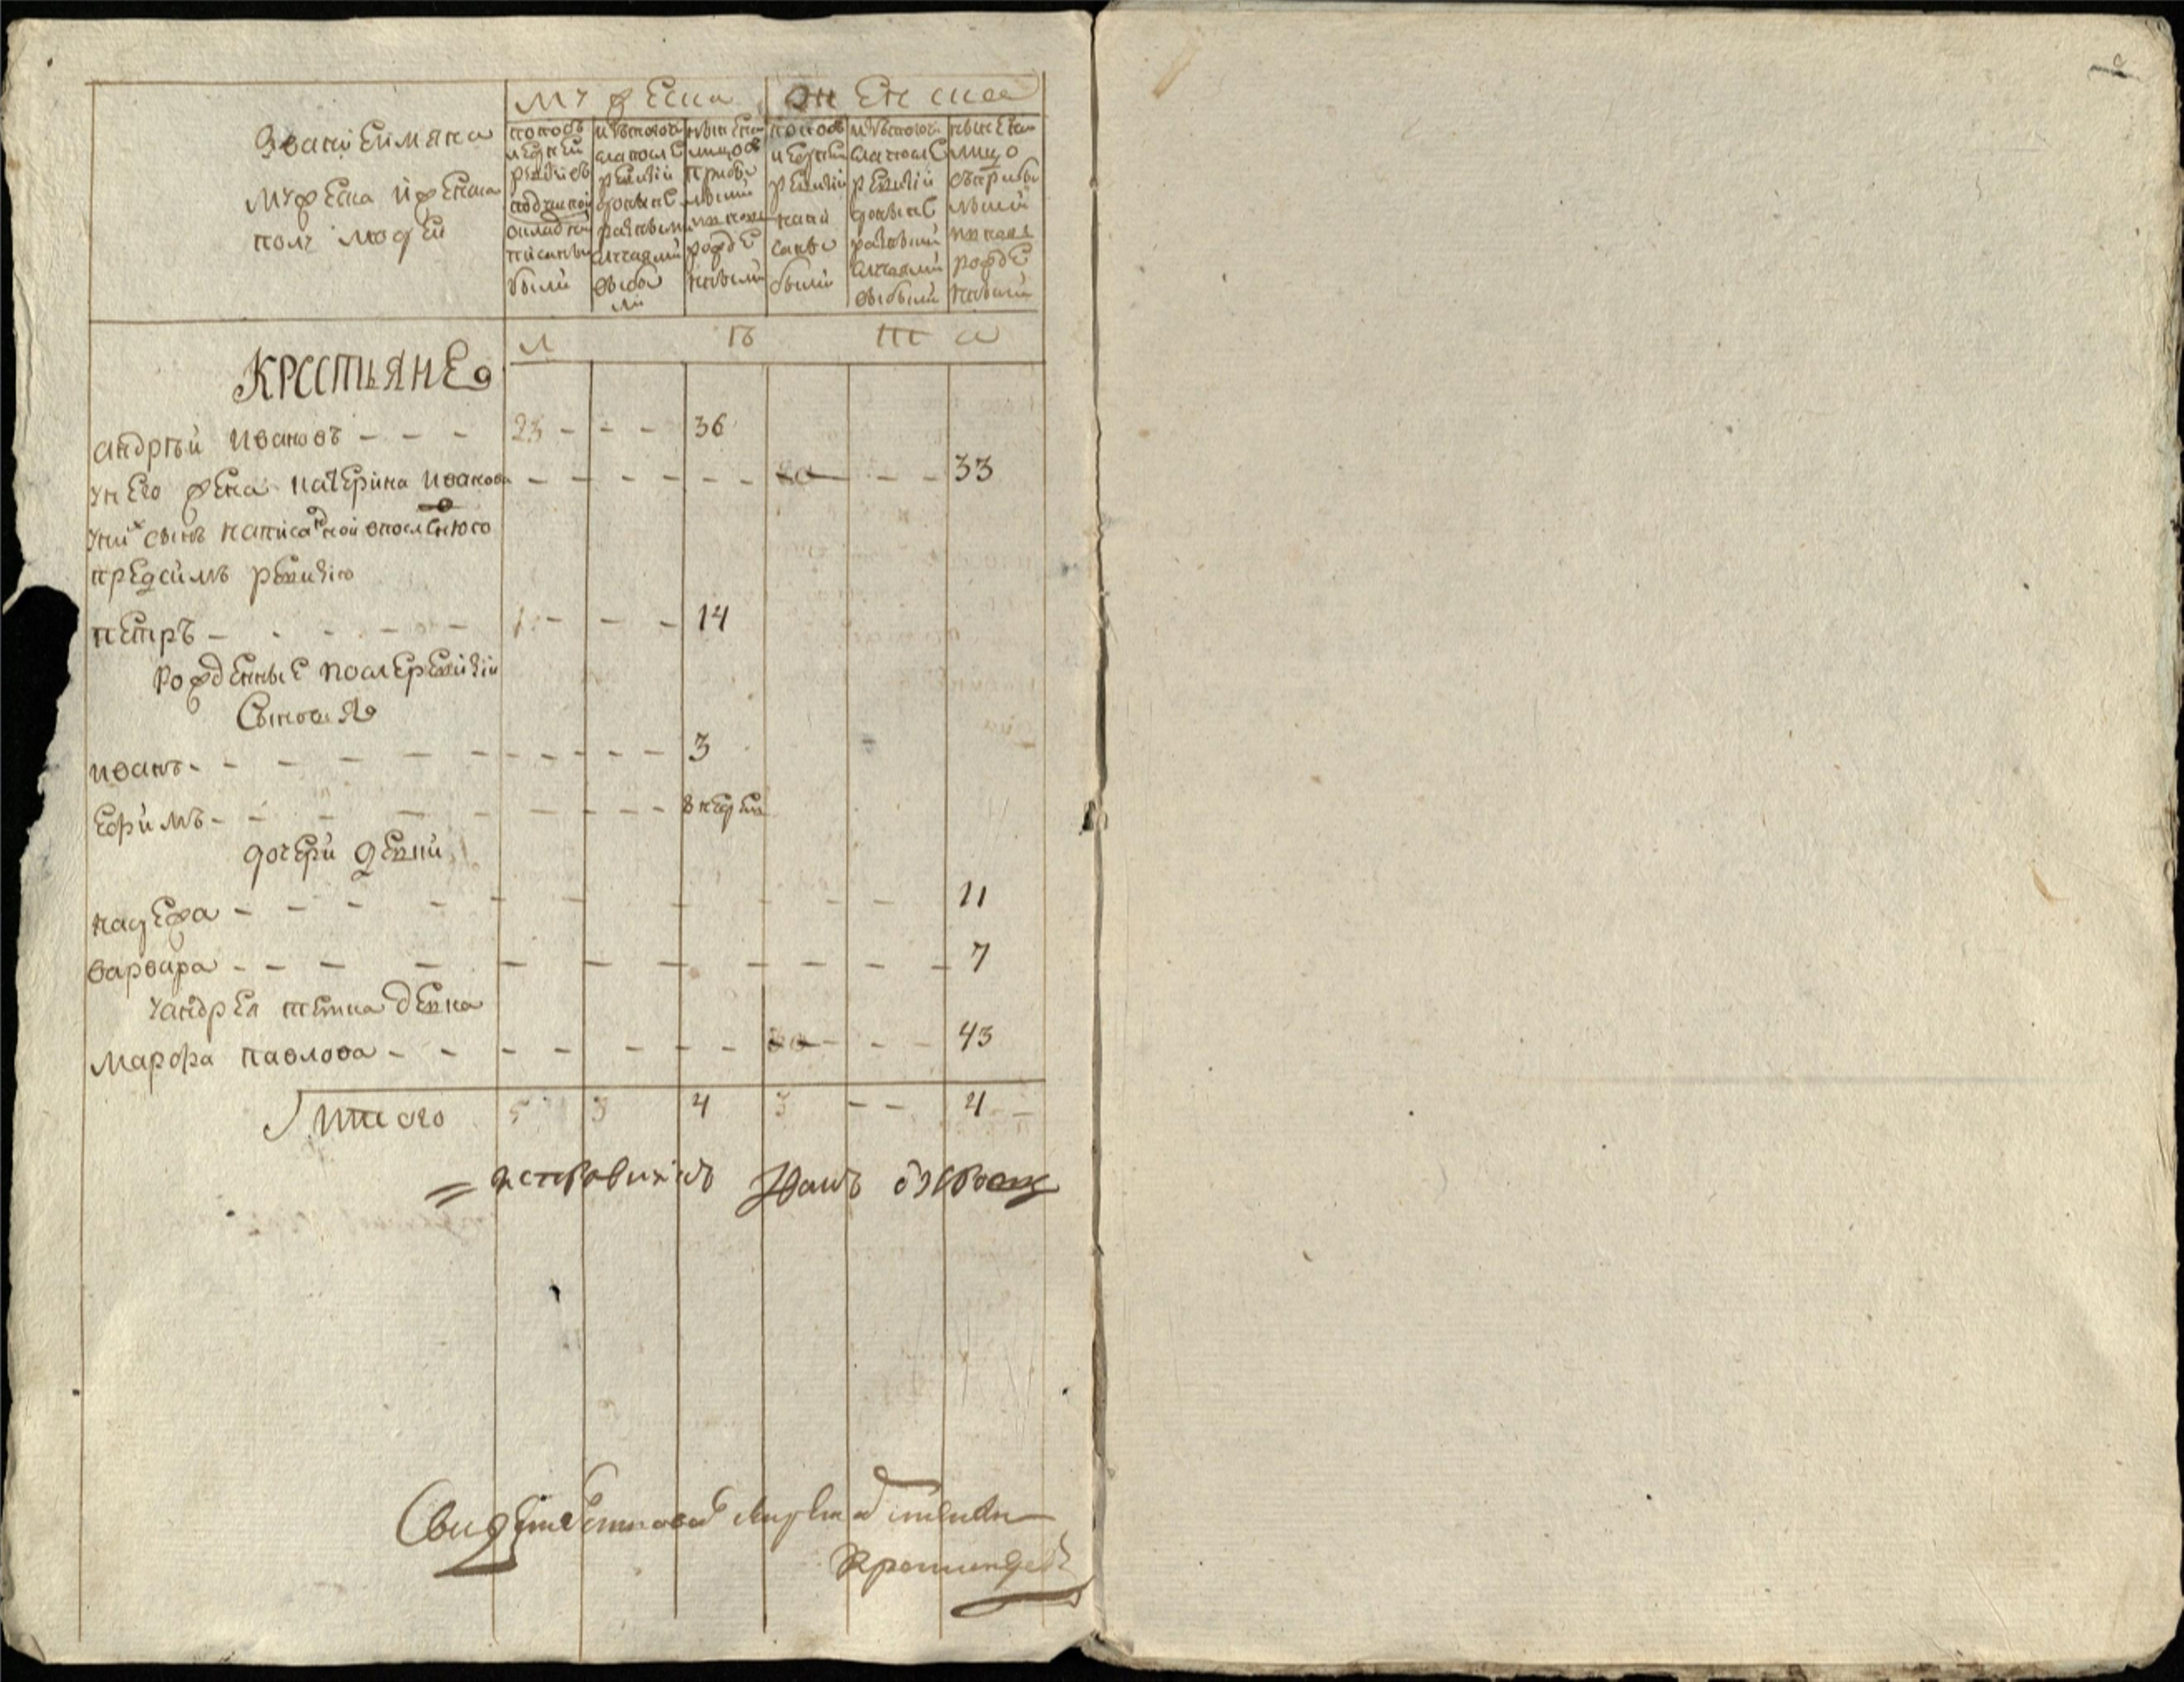 Званiе имяна
мужеска и женска
полу людей
мужеска
женска
попос
ледней
ревизiи
подушной
окладъ
написаны
были
ис того чис
ла после
ревизiи
разными
случаями
выбы
ли
ныне на
лицо съ
прибы
лыми
и вновь
рожде
нными
попос
ледней
ревизiи
напи
саны
были
ис того чис
ла после
ревизiи
разными
случаями
выбыли
ныне на
лицо
съ прибы
лыми
и вновь
рожде
нными
л ѣ т а
КРЕСТЬЯНЕ
андрѣй ивановъ - - - 23 - - - 36
у него жена катерина иванова - - - - - - - - - 33
у них сынъ написанной в последнюю
предсимъ ревизiю
петръ - - - - - 1 - - - 14
рожденные после ревизiи
сыновья
иванъ - - - - - - - - - 3
ефимъ - - - - - - - - 8 недель
дочери девки
надежа - - - - - - - - - - 11
варвара - - - - - - - - - - - 7
у андрея тетка девка
марфа павлова - - - - - - - - - 43
итого 5 3 4 3 - - 4
= исправникъ Иванъ
Свидетельствовал